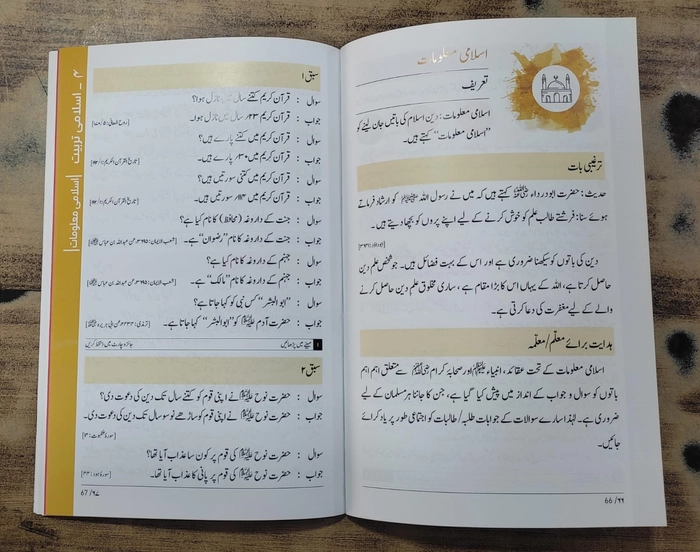 اسلامی معلومات
تعریف
اسلامی معلومات: دین اسلام کی باتیں جان لینے کو
”اسلامی معلومات“ کہتے ہیں۔
ترغیبی بات
حدیث: حضرت ابودرداء رضی اللہ عنہ کہتے ہیں کہ میں نے رسول اللہ ﷺ کو ارشاد فرماتے
ہوئے سنا: فرشتے طالب علم کو خوش کرنے کے لیے اپنے پروں کو بچھا دیتے ہیں۔
دین کی باتوں کو سیکھنا ضروری ہے اور اس کے بہت فضائل ہیں۔ جو شخص علم دین
حاصل کرتا ہے، اللہ کے یہاں اس کا بڑا مقام ہے، ساری مخلوق علم دین حاصل کرنے
والے کے لیے مغفرت کی دعا کرتی ہے۔
ہدایت برائے معلم/معلمہ
اسلامی معلومات کے تحت عقائد، انبیاء علیہم السلام اور صحابۂ کرام رضی اللہ عنہم سے متعلق اہم اہم
باتوں کو سوال و جواب کے انداز میں پیش کیا گیا ہے، جن کا جاننا ہر مسلمان کے لیے
ضروری ہے۔ لہٰذا سارے سوالات کے جوابات طلبہ/ طالبات کو اجتماعی طور پر یاد کرائے
جائیں۔
66 /۶۶
۴۔ اسلامی تربیت
اسلامی معلومات
سبق ۱
سوال : قرآن کریم کتنے سال میں نازل ہوا؟
جواب : قرآن کریم ۲۳؍ سال میں نازل ہوا۔
سوال : قرآن کریم میں کتنے پارے ہیں؟
جواب : قرآن کریم میں ۳۰؍ پارے ہیں۔
سوال : قرآن کریم میں کتنی سورتیں ہیں؟
جواب : قرآن کریم میں ۱۱۴؍ سورتیں ہیں۔
سوال : جنت کے داروغہ (محافظ) کا نام کیا ہے؟
جواب : جنت کے داروغہ کا نام ”رضوان“ ہے۔
سوال : جہنم کے داروغہ کا نام کیا ہے؟
جواب : جہنم کے داروغہ کا نام ”مالک“ ہے۔
سوال : ”ابو البشر“ کس نبی کو کہا جاتا ہے؟
جواب : حضرت آدم علیہ السلام کو ”ابو البشر“ کہا جاتا ہے۔
۱ مہینے میں پڑھائیں
سبق ۲
سوال : حضرت نوح علیہ السلام نے اپنی قوم کو کتنے سال تک دین کی دعوت دی؟
جواب : حضرت نوح علیہ السلام نے اپنی قوم کو ساڑھے نو سو سال تک دین کی دعوت دی۔
سوال : حضرت نوح علیہ السلام کی قوم پر کون سا عذاب آیا تھا؟
جواب : حضرت نوح علیہ السلام کی قوم پر پانی کا عذاب آیا تھا۔
67 /۶۷